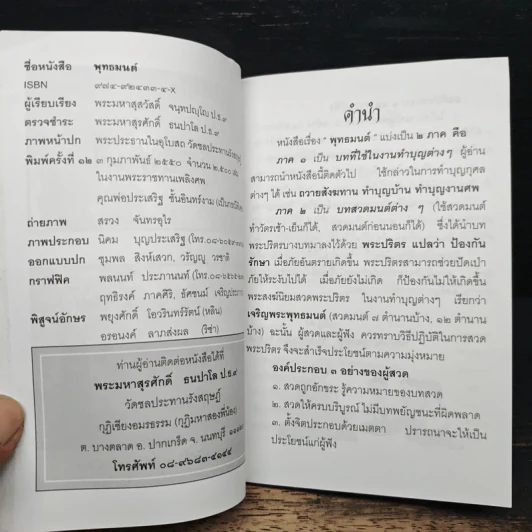 ชื่อหนังสือ พุทธมนต์
ISBN ๙๗๔-๙๒๔๓๓-๔-X
ผู้เรียบเรียง พระมหาสุรสวัสดิ์
ตรวจชำระ พระมหาสุรศักดิ์ ธนปาโล ป.ธ.๙
ภาพหน้าปก พระประธานในอุโบสถ
พิมพ์ครั้งที่ ๑๒ ๓ กุมภาพันธ์ ๒๕๕๐ จำนวน ๒,๕๐๐ เล่ม
ในงานพระราชทานเพลิงศพ
คุณพ่อประเสริฐ
ถ่ายภาพ สรวง จันทรอุไร
ภาพประกอบ นิคม บุญประเสริฐ
ออกแบบปก ชุมพล สิงห์เสวก, วรัญญู วรชาติ
กราฟฟิค พลนนท์ ประภานนท์
ฤทธิรงค์ ภาคศิริ,
พิสูจน์อักษร พยุงศักดิ์ โอวรินทร์รัตน์ (หลิน)
อรอนงค์ ลาภส่งผล
ท่านผู้อ่านติดต่อหนังสือได้ที่
พระมหาสุรศักดิ์ ธนปาโล ป.ธ.๙
วัดชลประทานรังสฤษฎ์
กุฏิเชียงอมรธรรม (กุฏิมหาสองพี่น้อง)
ต. บางตลาด อ. ปากเกร็ด จ. นนทบุรี
โทรศัพท์ ๐๘-๙๖๘๓-๔๑๔๔
คำนำ
หนังสือเรื่อง " พุทธมนต์ " แบ่งเป็น ๒ ภาค คือ
ภาค ๑ เป็น บทที่ใช้ในงานทำบุญต่างๆ ผู้อ่าน
สามารถนำหนังสือนี้ติดตัวไป ใช้กล่าวในการทำบุญกุศล
ต่างๆ ได้ เช่น ถวายสังฆทาน ทำบุญบ้าน ทำบุญงานศพ
ภาค ๒ เป็น บทสวดมนต์ต่าง ๆ (ใช้สวดมนต์
ทำวัตรเช้า-เย็นก็ได้, สวดมนต์ก่อนนอนก็ได้) ซึ่งได้นำบท
พระปริตรบางบทมาลงไว้ด้วย พระปริตร แปลว่า ป้องกัน
รักษา เมื่อภัยอันตรายเกิดขึ้น พระปริตรสามารถช่วยปัดเป่า
ภัยให้ระงับไปได้ เมื่อภัยยังไม่เกิด ก็ป้องกันไม่ให้เกิดขึ้น
พระสงฆ์นิยมสวดพระปริตร ในงานทำบุญต่างๆ เรียกว่า
เจริญพระพุทธมนต์ (สวดมนต์ ๗ ตำนานบ้าง, ๑๒ ตำนาน
บ้าง) ฉะนั้น ผู้สวดและผู้ฟัง ควรทราบวิธีปฏิบัติในการสวด
พระปริตร จึงจะสำเร็จประโยชน์ตามความมุ่งหมาย
องค์ประกอบ ๓ อย่างของผู้สวด
๑. สวดถูกอักขระ รู้ความหมายของบทสวด
๒. สวดให้ครบบริบูรณ์ ไม่มีบทพยัญชนะที่ผิดพลาด
๓. ตั้งจิตประกอบด้วยเมตตา ปรารถนาจะให้เป็น
ประโยชน์แก่ผู้ฟัง